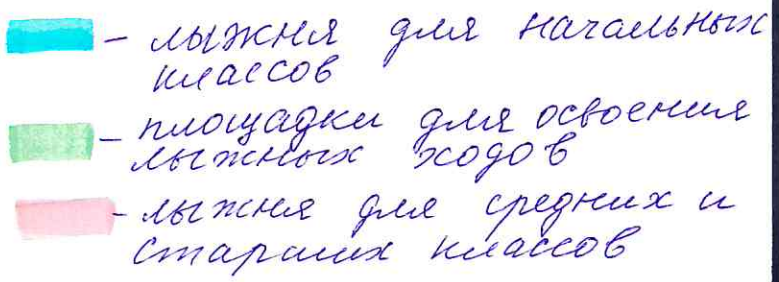 - лыжня для начальных
классов
- площадки для освоения
лыжных ходов
- лыжня для средних и
старших классов